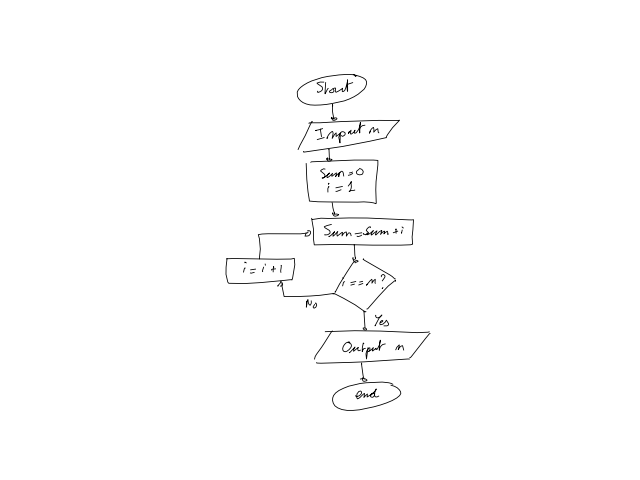 Start
Input n
Sum = 0
i = 1
Sum = Sum + i
i = i + 1
i == n ?
No
Yes
Output n
end